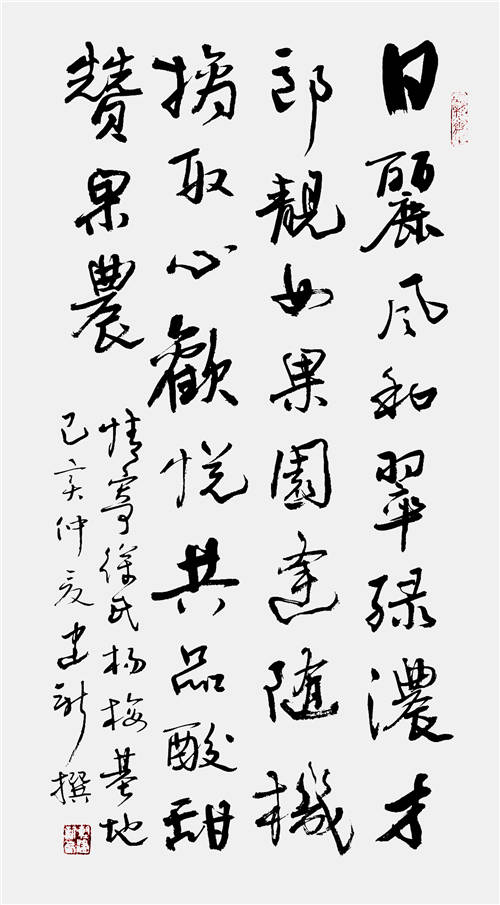 日麗风和翠绿濃才
郎靚女果園逢随機
摘取心歡悦共品酸甜
贊果農
情寄徐氏杨梅基地
己亥仲夏建新撰